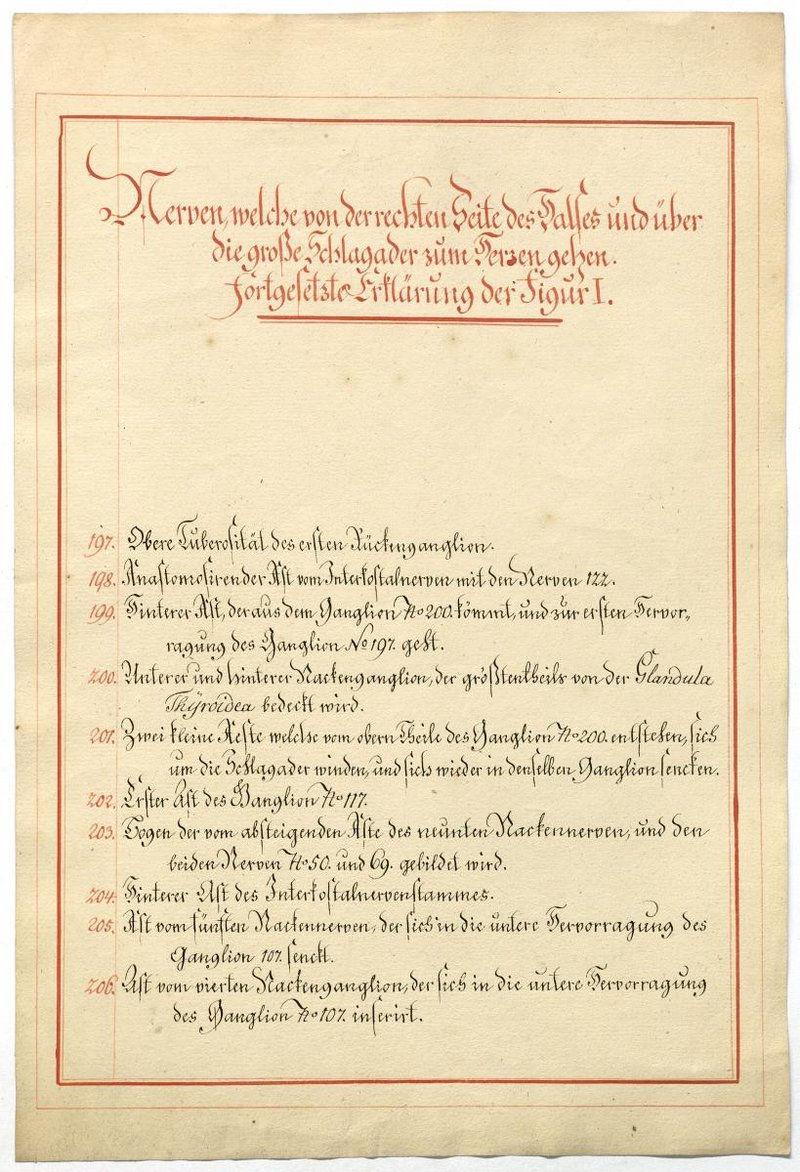 Nerven, welche von der rechten Seite des Halses und über
die große Schlagader zum Herzen gehen.
fortgesetzte Erklärung der Figur I.
197. Obere Tuberosität des ersten Rückenganglion.
198. Anastomosirender Ast vom Interkostalnerven mit den Nerven 122.
199. Hinterer Ast, der aus dem Ganglion No 200. kömmt, und zur ersten Hervor-
ragung des Ganglion No 197. geht.
200. Unterer und hinterer Nackenganglion, der größtentheils von der Glandula
Thÿroidea bedeckt wird.
201. Zwei kleine Aeste welche vom obern Theile des Ganglion No 200. entstehen, sich
um die Schlagader winden, und sich wieder in denselben Ganglion sencken.
202. Erster Ast des Ganglion No 117.
203. Bogen der vom absteigenden Aste des neunten Nackennerven, und den
beiden Nerven No 50. und 69. gebildet wird.
204. Hinterer Ast des Interkostalnervenstammes.
205. Ast vom fünften Nackennerven, der sich in die untere Hervorragung des
Ganglion 107. senckt.
206. Ast vom vierten Nackenganglion, der sich in die untere Hervorragung
des Ganglion No 107. inserirt.